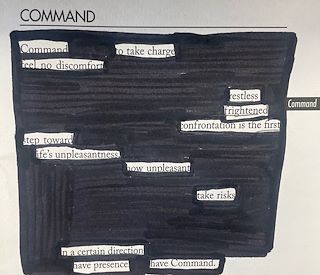 COMMAND
Command to take charge
feel no discomfort
restless
Command
frightened
confrontation is the first
step toward
life's unpleasantness
now unpleasant
take risks
in a certain direction
have presence have Command.